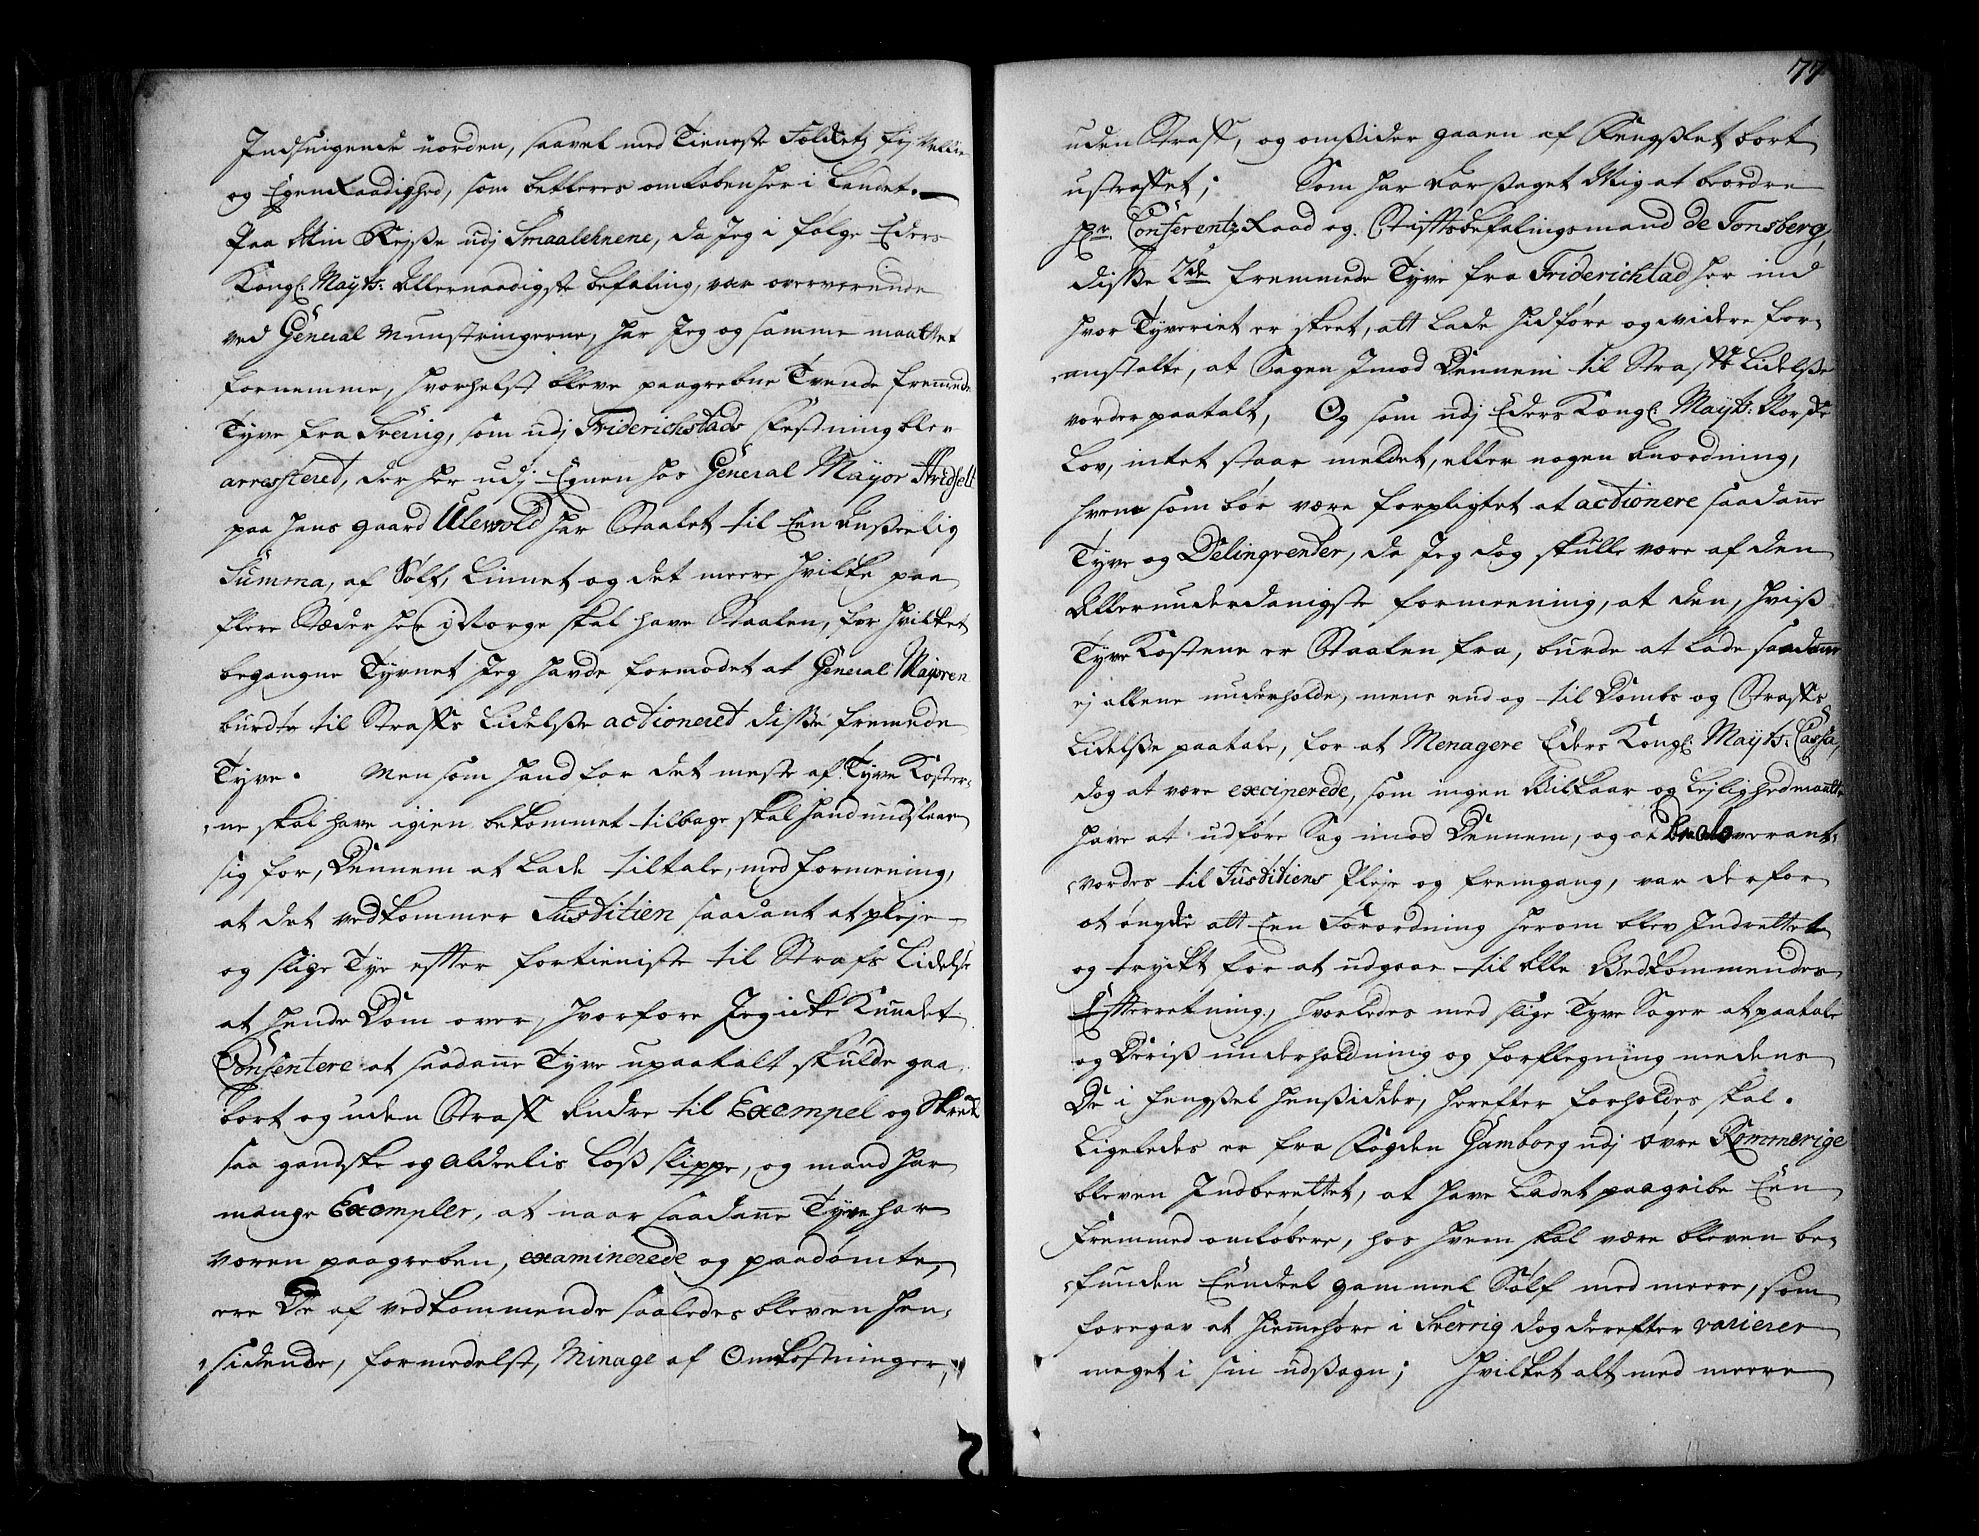 Indsnigende uorden, saavel med Tieneste Folckets
og Egenraadighed, som betleres omløben her i Landet.
Paa Min Reyse udj Smaalehnene, da Jeg i følge Eders
Kongl: Mayts: Allernaadigste befaling, var overværende
ved General Munstringerne, har Jeg og samme maattet
fornemme, hvorhelst bleve paagrebne Tvende fremmede
Tyve fra Sverrig, som udj Friderichstads Festning blev
arresteret, der her udj Egnen hos General Mayor
paa hans gaard Ulewold har Staalet til Een anseelig
Summa, af Sølf, Linnet og det meere hvilke paa
flere Stæder her i Norge skal have Staalen, for hvilket
begangne Tyvnet Jeg havde formodet at General Mayoren
burdte til Straffs Lidelse actioneret disse fremmede
Tyve. Men som hand for det meste af Tyve Koster-
ne skal have igien bekommet tilbage skal hand undslaae
sig for, Dennem at lade tiltale, med formening,
at det vedkommer Justitien saadant at pleje
og slige Tyve effter fortieniste til Strafs Lidelse
at hende Dom over, hvorfore Jeg icke Kundet
Consentere at saadanne Tyve upaatalt skulde gaa
bort og uden Straff Andre til Exempel og Skræk
saa gandske og aldeelis Løß slippe, og mand har
mange Exempler, at naar saadanne Tyve har
voren paagreben, examinerede og paadømte,
ere De af vedkommende saaledes bleven hen-
sidende, formedelst, Minage af Omkostninger,
77
uden Straff, og omsider gaaen af Fengslet bort
ustraffet; Som har foraarsaget Mig at beordre
Hr: Conferentz Raad og Stifftsbefalingsmand de Tonsberg,
disse 2de fremmede Tyve fra Friderichstad her ind
hvor Tyveriet er skeet, att lade hidføre og widere for-
anstalte, at Sagen Jmod Dennem til Straffs Lidelse
vorder paatalt, Og som udj Eders Kongl: Mayts: Norske
Lov, intet staar meldet, eller nogen Anordning,
hvem som bør være forpligtet at actionere saadanne
Tyve og Delinqventer, da Jeg dog skulle være af den
Allerunderdanigste formeening, at den, hviß
Tyve Kostene er Staalen fra, burde at lade saadanne
ej allene underholde, mens endog til Dombs og Straffs
Lidelse paatale, for at Menagere Eders Kongl: Mayts: Cassa,
dog at være exciperede, som ingen Vilkaar og Lejlighed maatte
have at udføre Sag imod Dennem, og at overant-
vordes til Justitiens Pleje og fremgang, var derfor
at ønske att Een Forordning herom blev Indrettet
og tryckt for at udgaae til Alle Vedkommendes
Effterretning, hvorledes med slige Tyve Sager at paatale
og Deriß underholdning og forpflegning medens
De i fengsel hensidder, herefter forholdes skal.
Ligeledes er fra Fogden Gamborg udj øvre Rommerige
bleven Indberettet, at have Ladet paagribe Een
fremmed omløbere, hos hvem skal være bleven be-
funden Eendeel gammel Sølf med meere, som
foregav at hiemmehøre i Sverrig dog derefter varierer
meget i sin udsagn; hvilket alt med meere